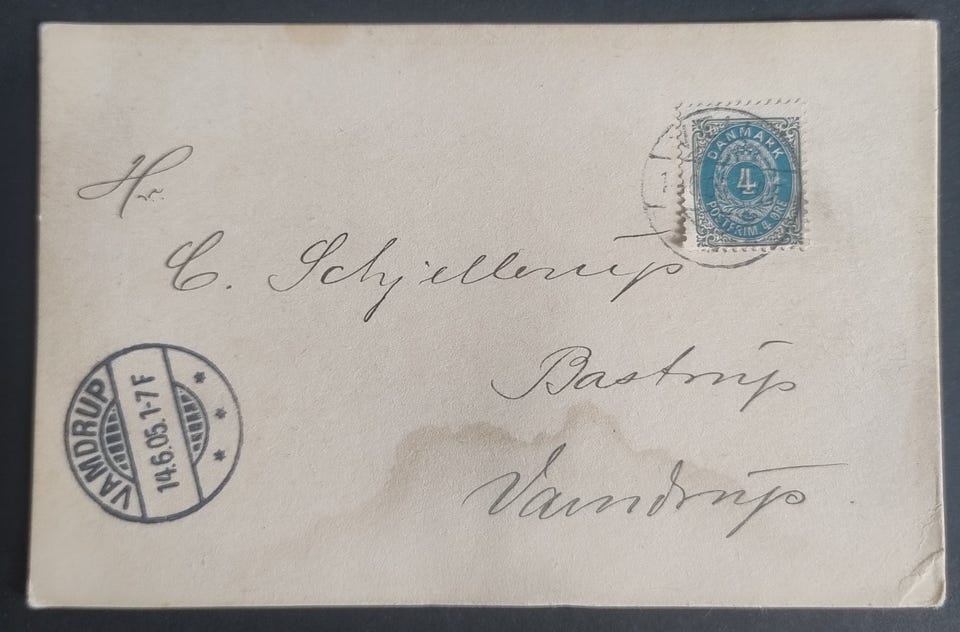 DANMARK
4
POSTFRIM. 4 ØRE
Hr.
C. Schjellerup
Bastrup
Vamdrup.
VAMDRUP
14.6.05. 1-7 F